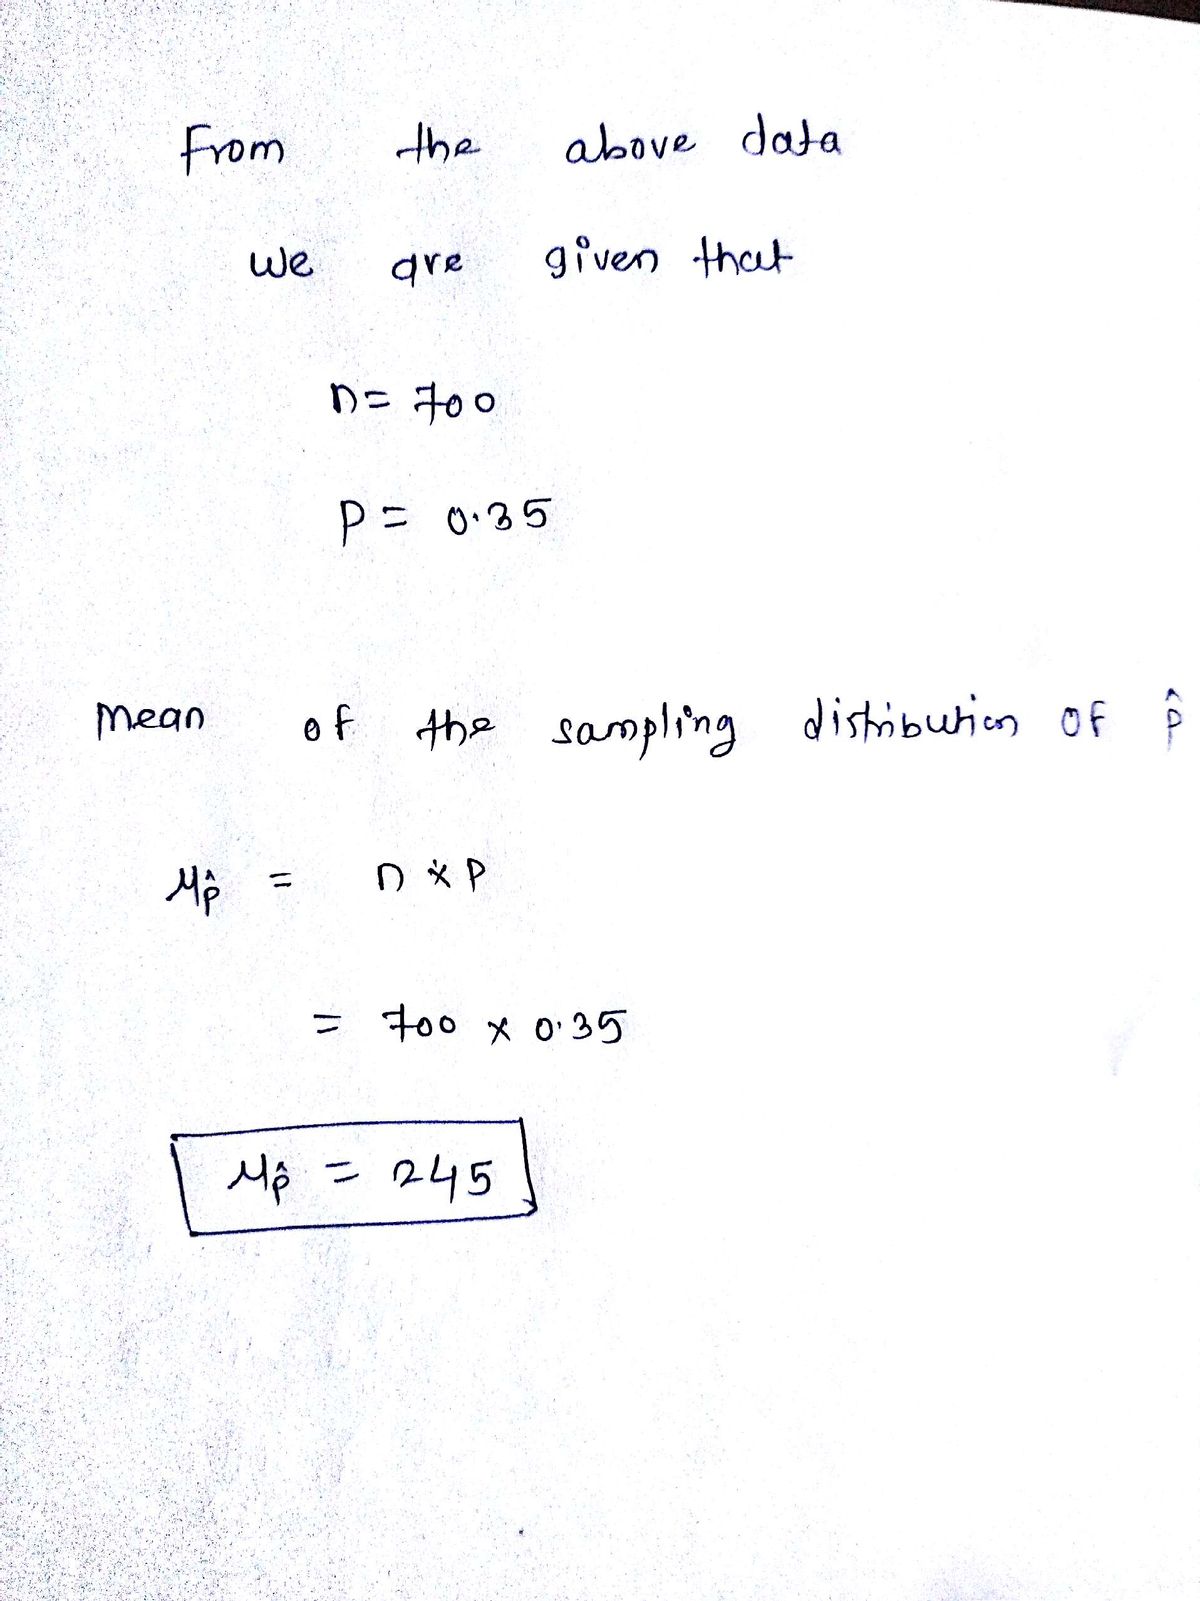 From the above data
we are given that
n = 700
P = 0.35
Mean of the sampling distribution of p̂
μp̂ = n × P
= 700 × 0.35
μp̂ = 245